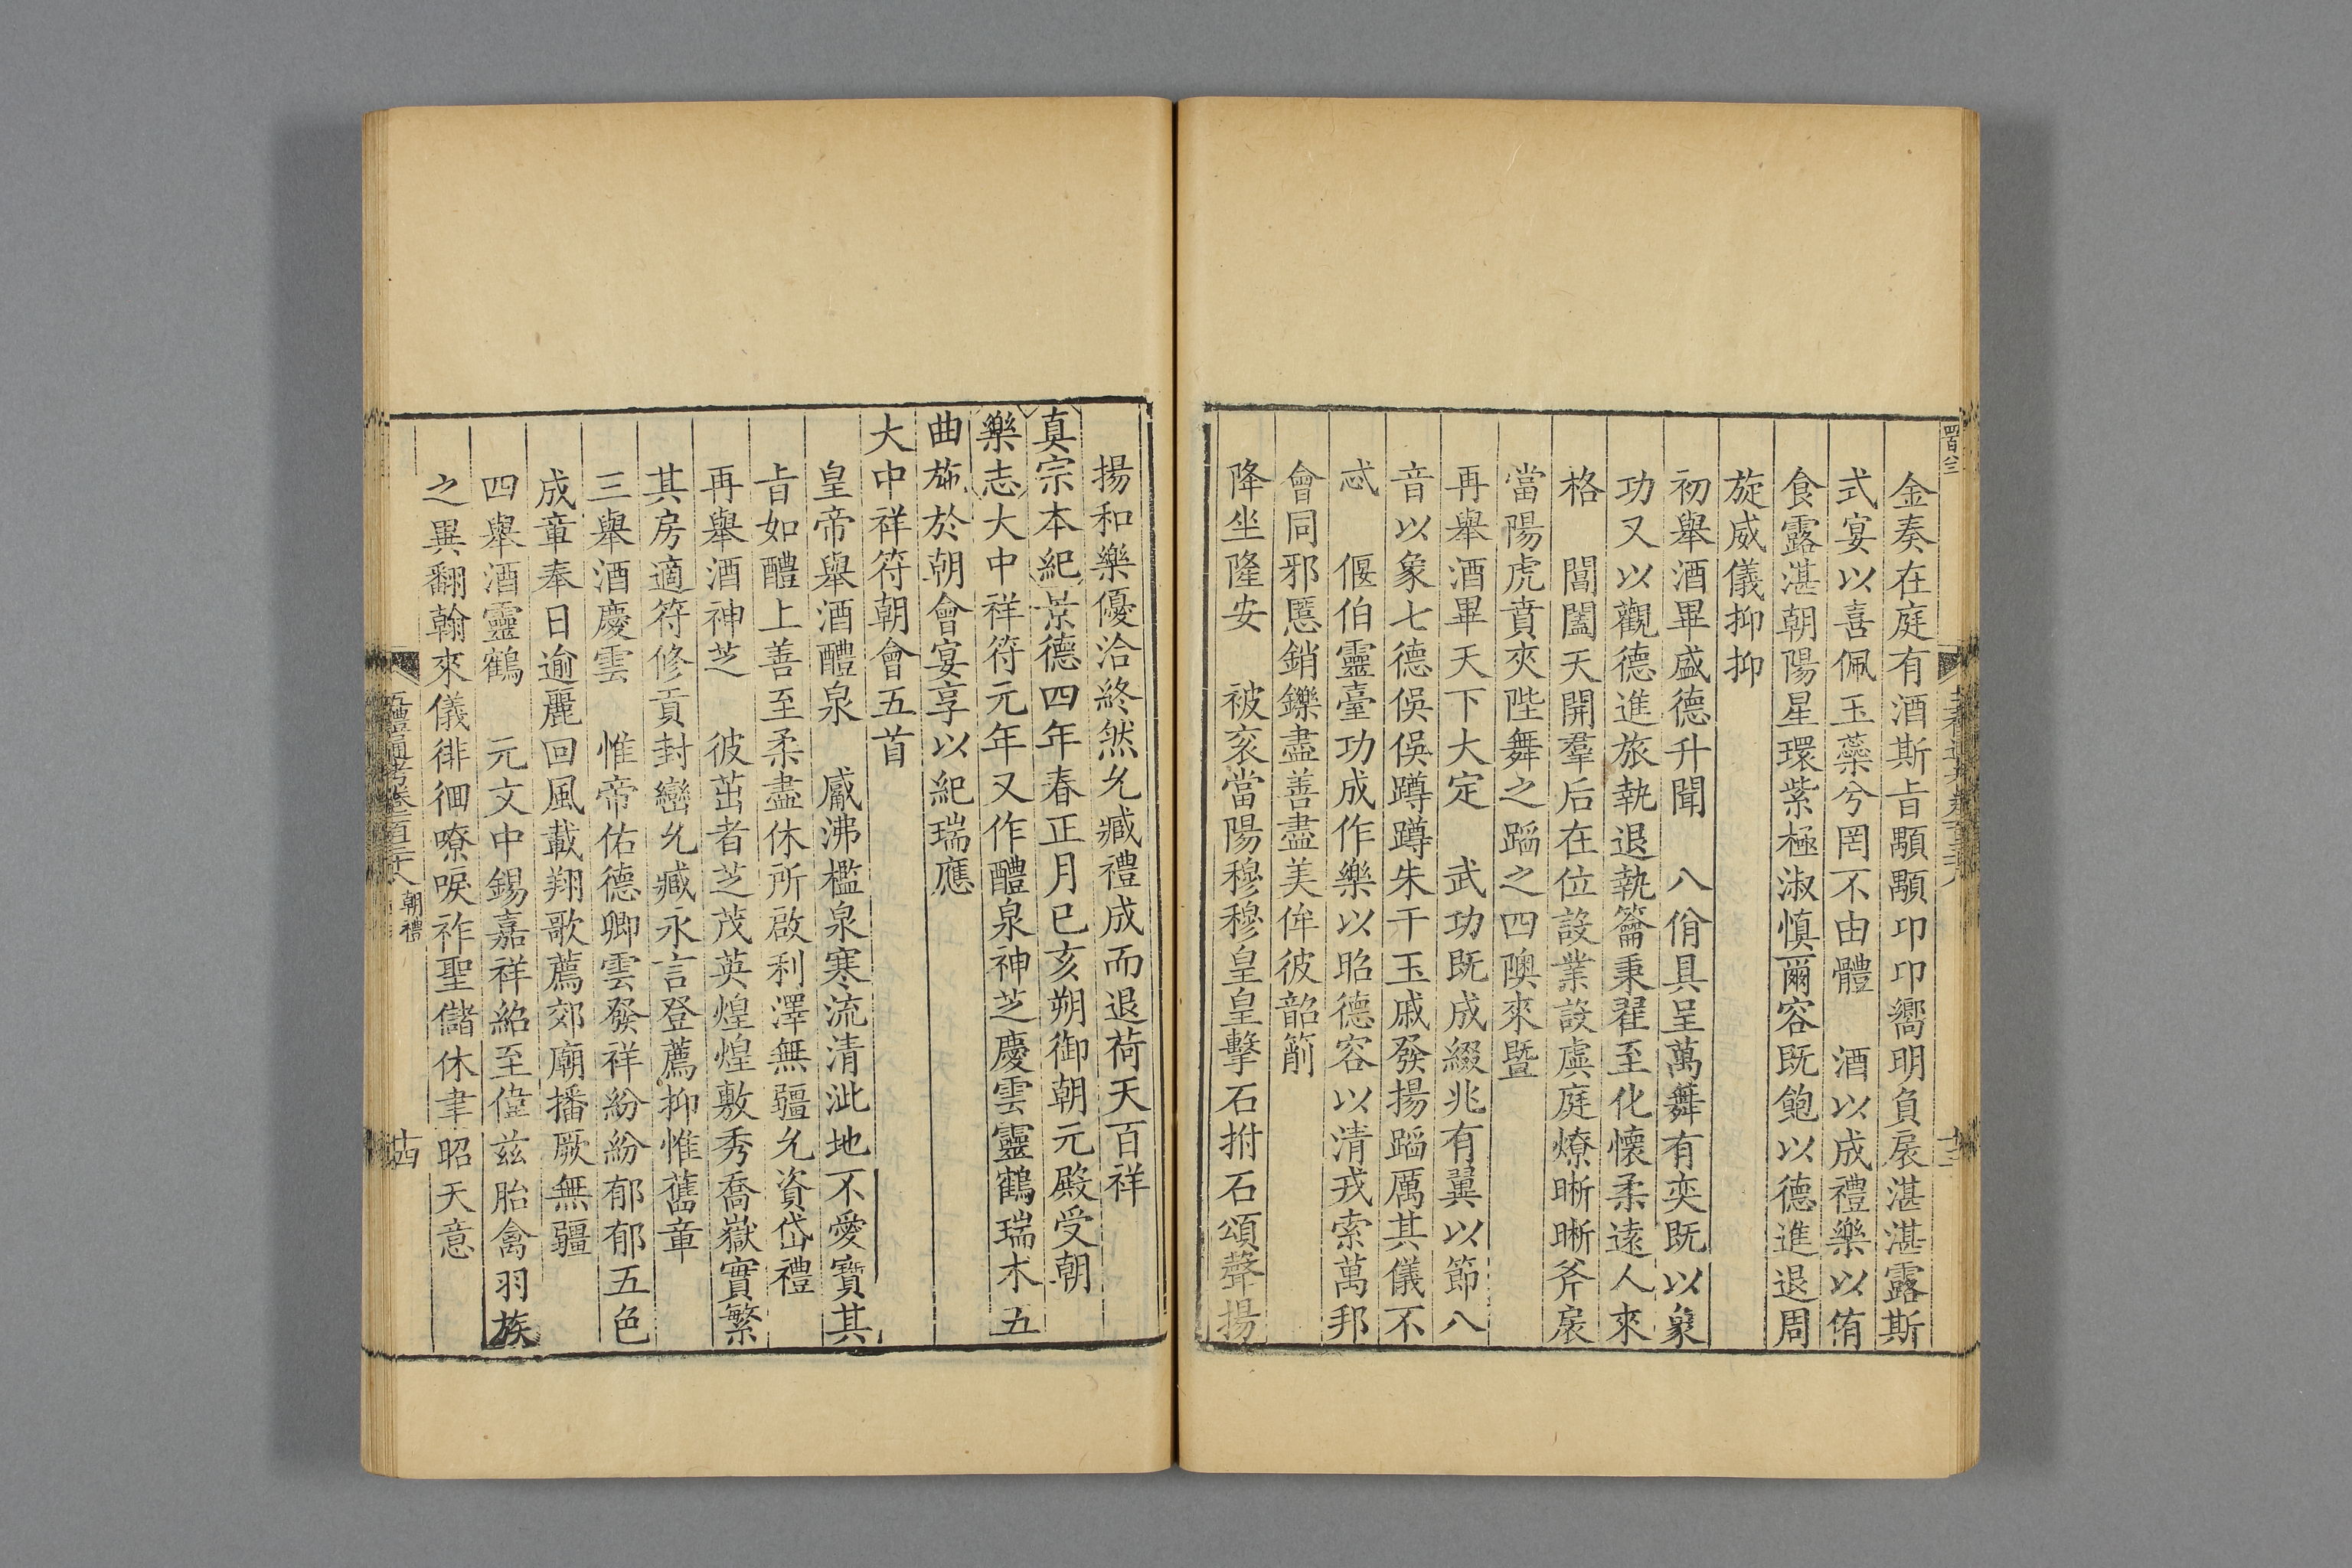 金奏在庭有酒斯旨顒顒卬卬嚮明負扆湛湛露斯
式宴以喜佩玉蘂兮罔不由體　酒以成禮樂以侑
食露湛朝陽星環紫極淑慎爾容既飽以德進退周
旋威儀抑抑
初舉酒畢盛德升聞　八佾具呈萬舞有奕既以象
功又以觀德進旅執退執籥秉翟至化懷柔遠人來
格　閶闔天開羣后在位設業設虡庭燎晣晣斧扆
當陽虎賁夾陛舞之蹈之四隩來暨
再舉酒畢天下大定　武功既成綴兆有翼以節八
音以象七德俁俁蹲蹲朱干玉戚發揚蹈厲其儀不
忒　偃伯靈臺功成作樂以昭德容以清戎索萬邦
會同邪慝銷鑠盡善盡美侔彼韶箾
降坐隆安　被衮當陽穆穆皇皇擊石拊石頌聲揚
揚和樂優洽終然允臧禮成而退荷天百祥
真宗本紀景德四年春正月巳亥朔御朝元殿受朝
樂志大中祥符元年又作醴泉神芝慶雲靈鶴瑞木五
曲施於朝會宴享以紀瑞應
大中祥符朝會五首
皇帝舉酒醴泉　觱沸檻泉寒流清泚地不愛寶其
旨如醴上善至柔盡休所啟利澤無疆允資岱禮
再舉酒神芝　彼茁者芝茂英煌煌敷秀喬嶽實繁
其房適符修貢封巒允臧永言登薦抑惟舊章
三舉酒慶雲　惟帝佑德卿雲發祥紛紛郁郁五色
成章奉日逾麗回風載翔歌薦郊廟播厥無疆
四舉酒靈鶴　元文申錫嘉祥紹至偉兹胎禽羽族
之異翻翰來儀徘徊嘹唳祚聖儲休聿昭天意
朝禮
十四